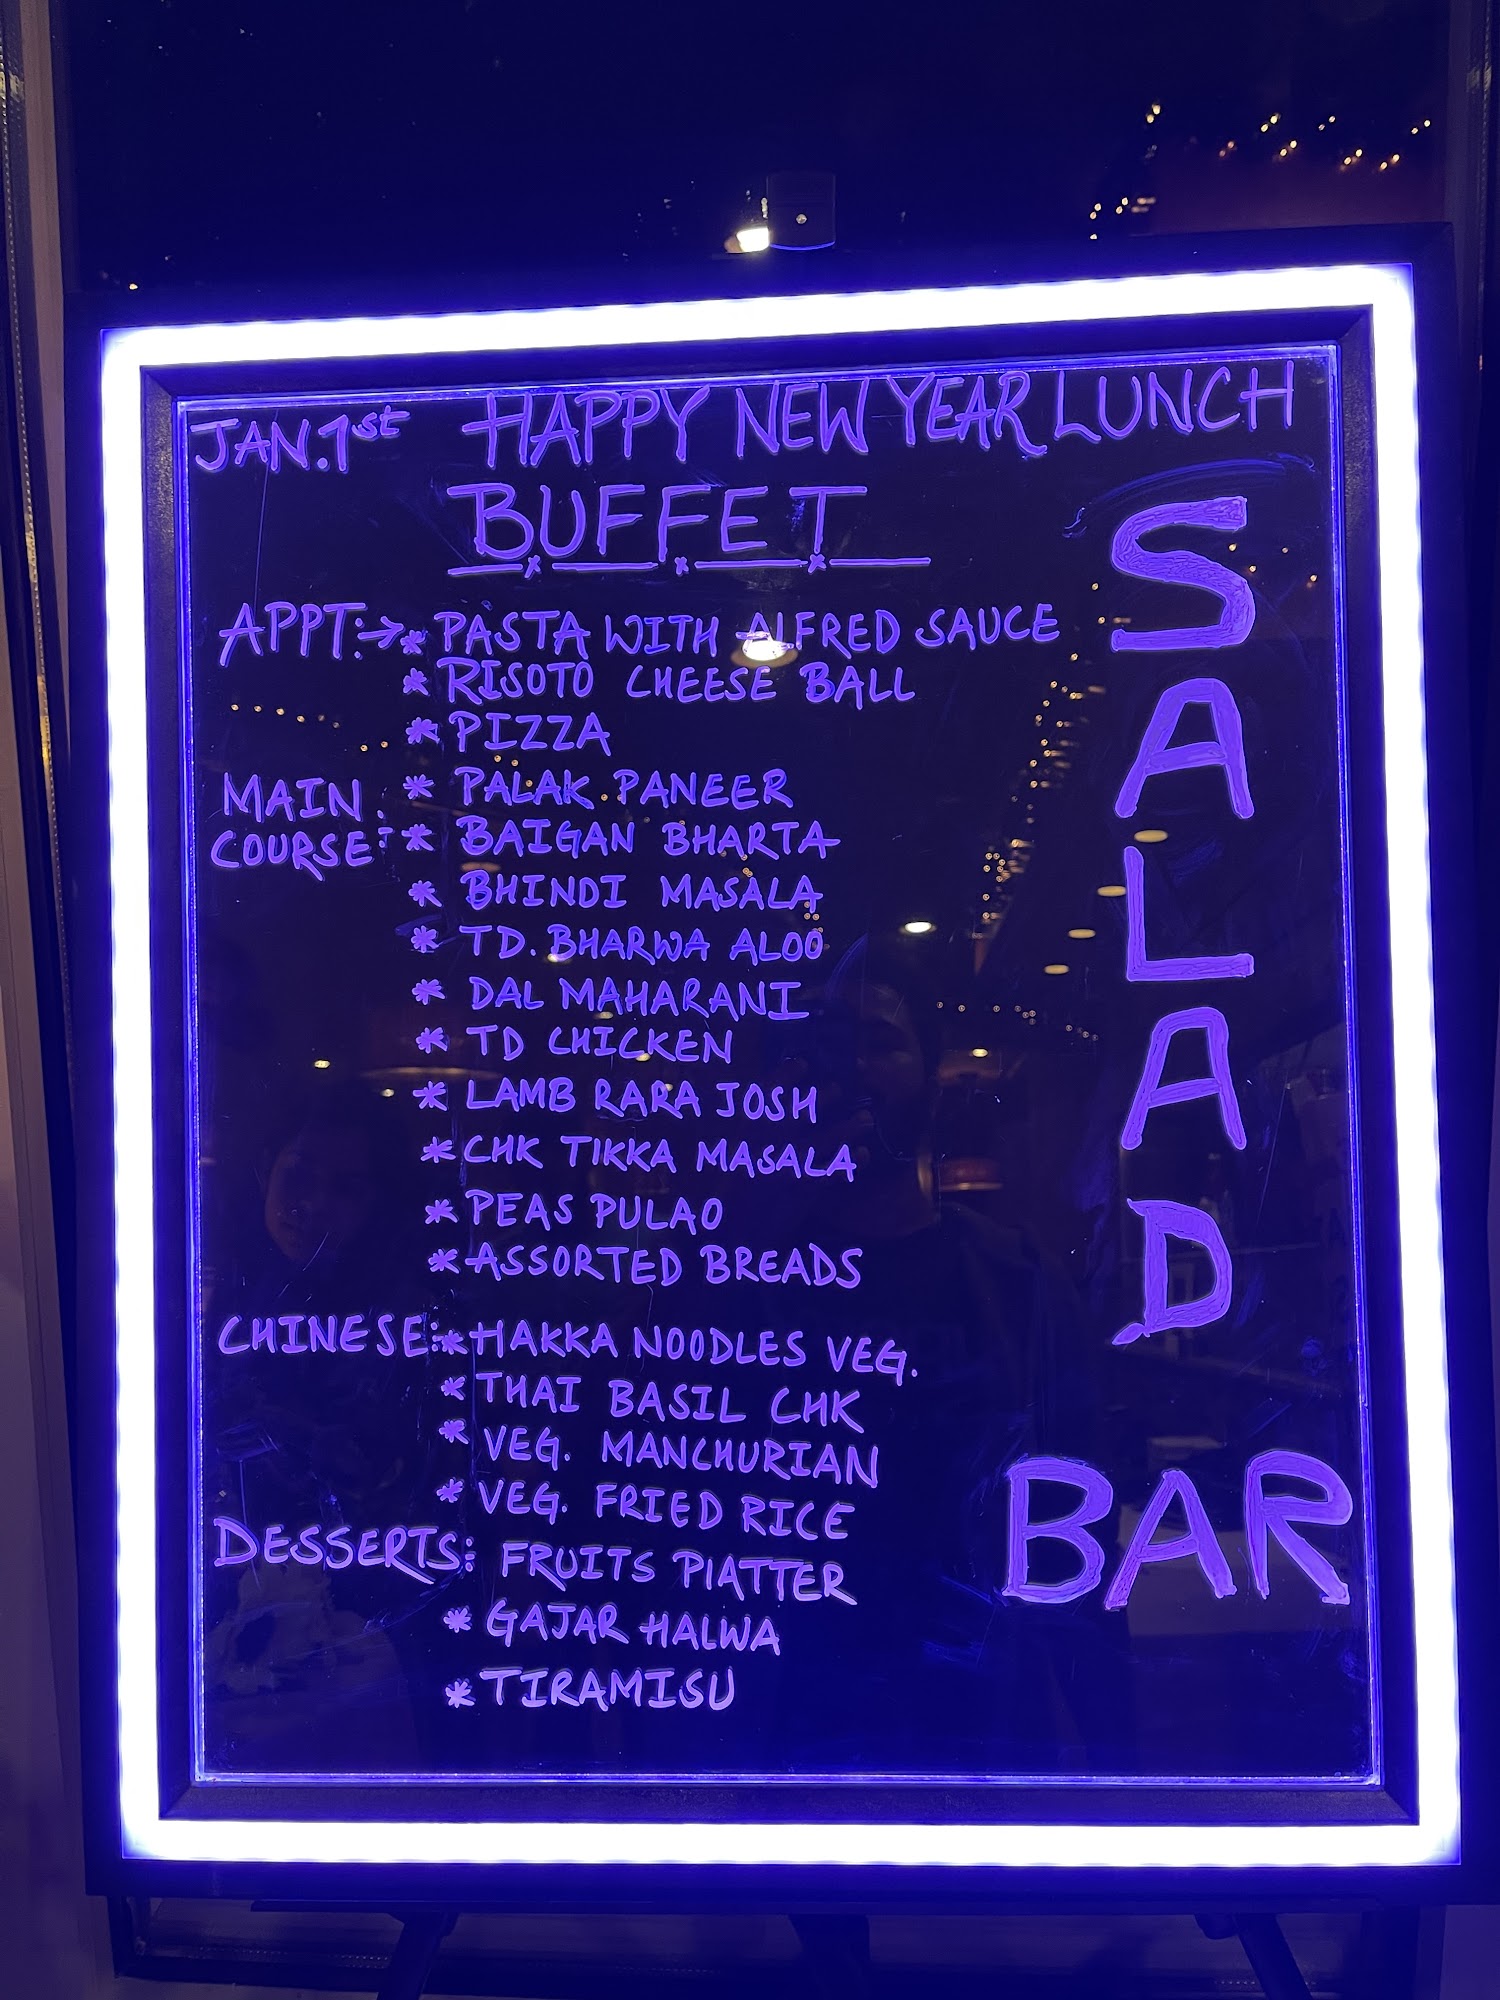 JAN.1st HAPPY NEW YEAR LUNCH
BUFFET
APPT:→* PASTA WITH ALFRED SAUCE
* RISOTO CHEESE BALL
* PIZZA
MAIN : * PALAK PANEER
COURSE: * BAIGAN BHARTA
* BHINDI MASALA
* TD. BHARWA ALOO
* DAL MAHARANI
* TD CHICKEN
* LAMB RARA JOSH
* CHK TIKKA MASALA
* PEAS PULAO
* ASSORTED BREADS
CHINESE:* HAKKA NOODLES VEG.
* THAI BASIL CHK
* VEG. MANCHURIAN
* VEG. FRIED RICE
DESSERTS: FRUITS PLATTER
* GAJAR HALWA
* TIRAMISU
SALAD
BAR